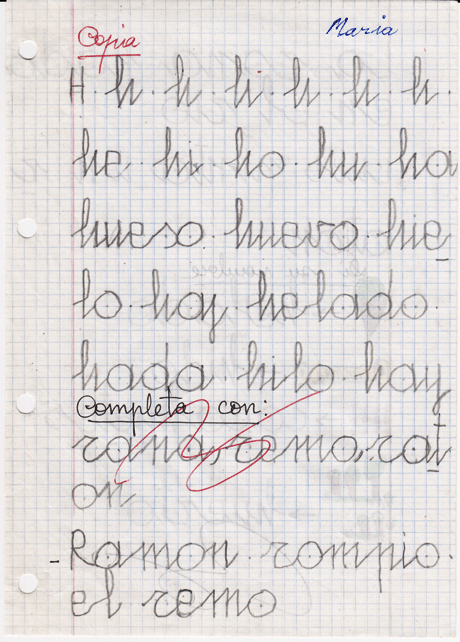 Copia
Maria
H · h · h · h · h · h · h ·
he · hi · ho · hu · ha
hueso · huevo · hie_
lo · hoy · helado ·
hada · hilo · hay
Completa con:
rana, remo, rat
on
- Ramon · rompio ·
el remo